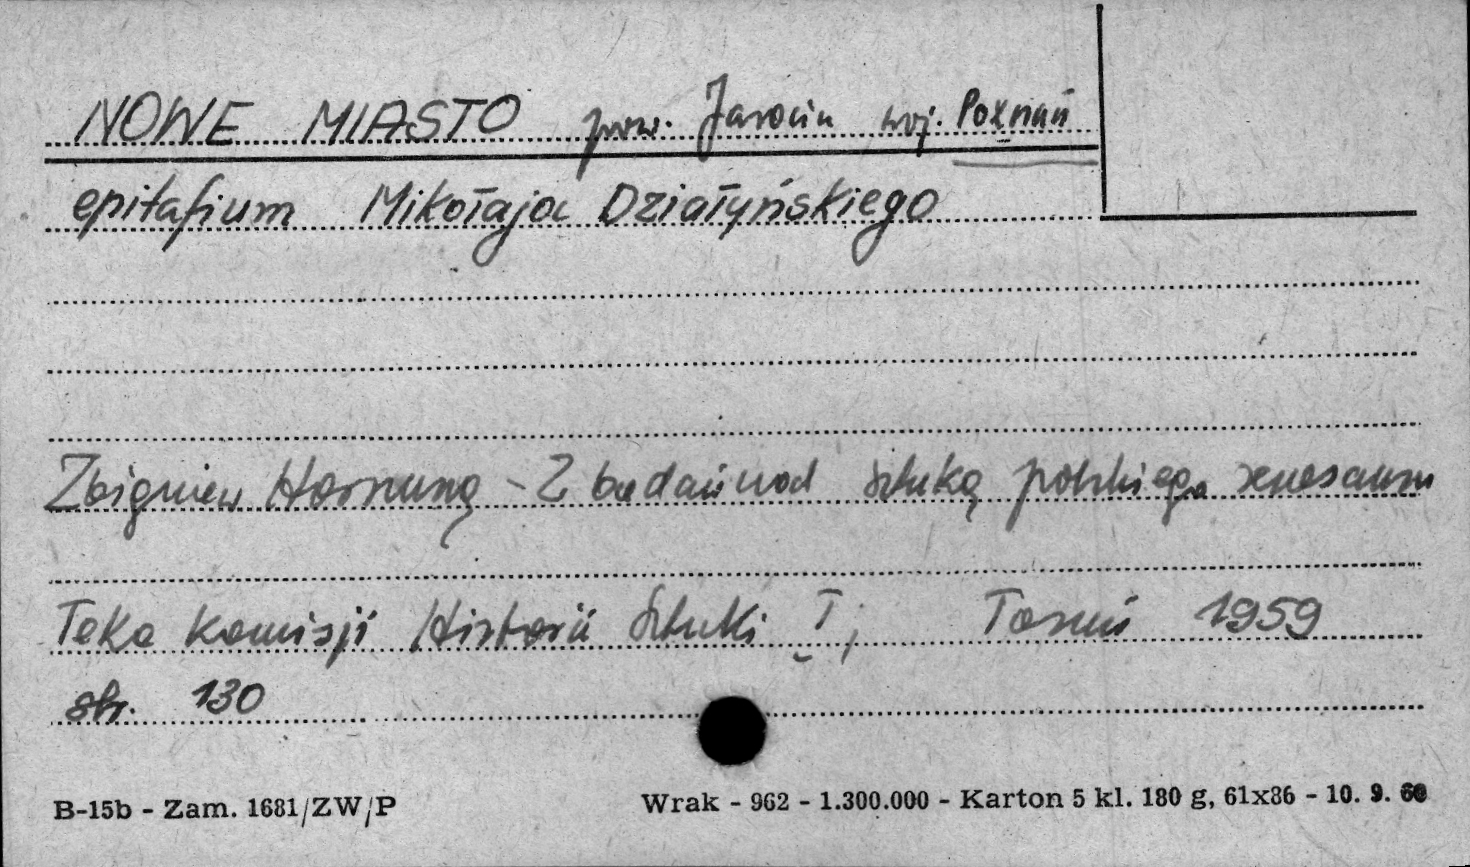 NOWE MIASTO pow. Jarocin woj. Poznań
epitafium Mikołaja Działyńskiego
Zbigniew Hornung - Z badań nad sztuką polskiego renesansu
Teka Komisji Historii Sztuki I; Toruń 1959
str. 130
B-15b - Zam. 1681/ZW/P
Wrak - 962 - 1.300.000 - Karton 5 kl. 180 g, 61x86 - 10. 9. 60